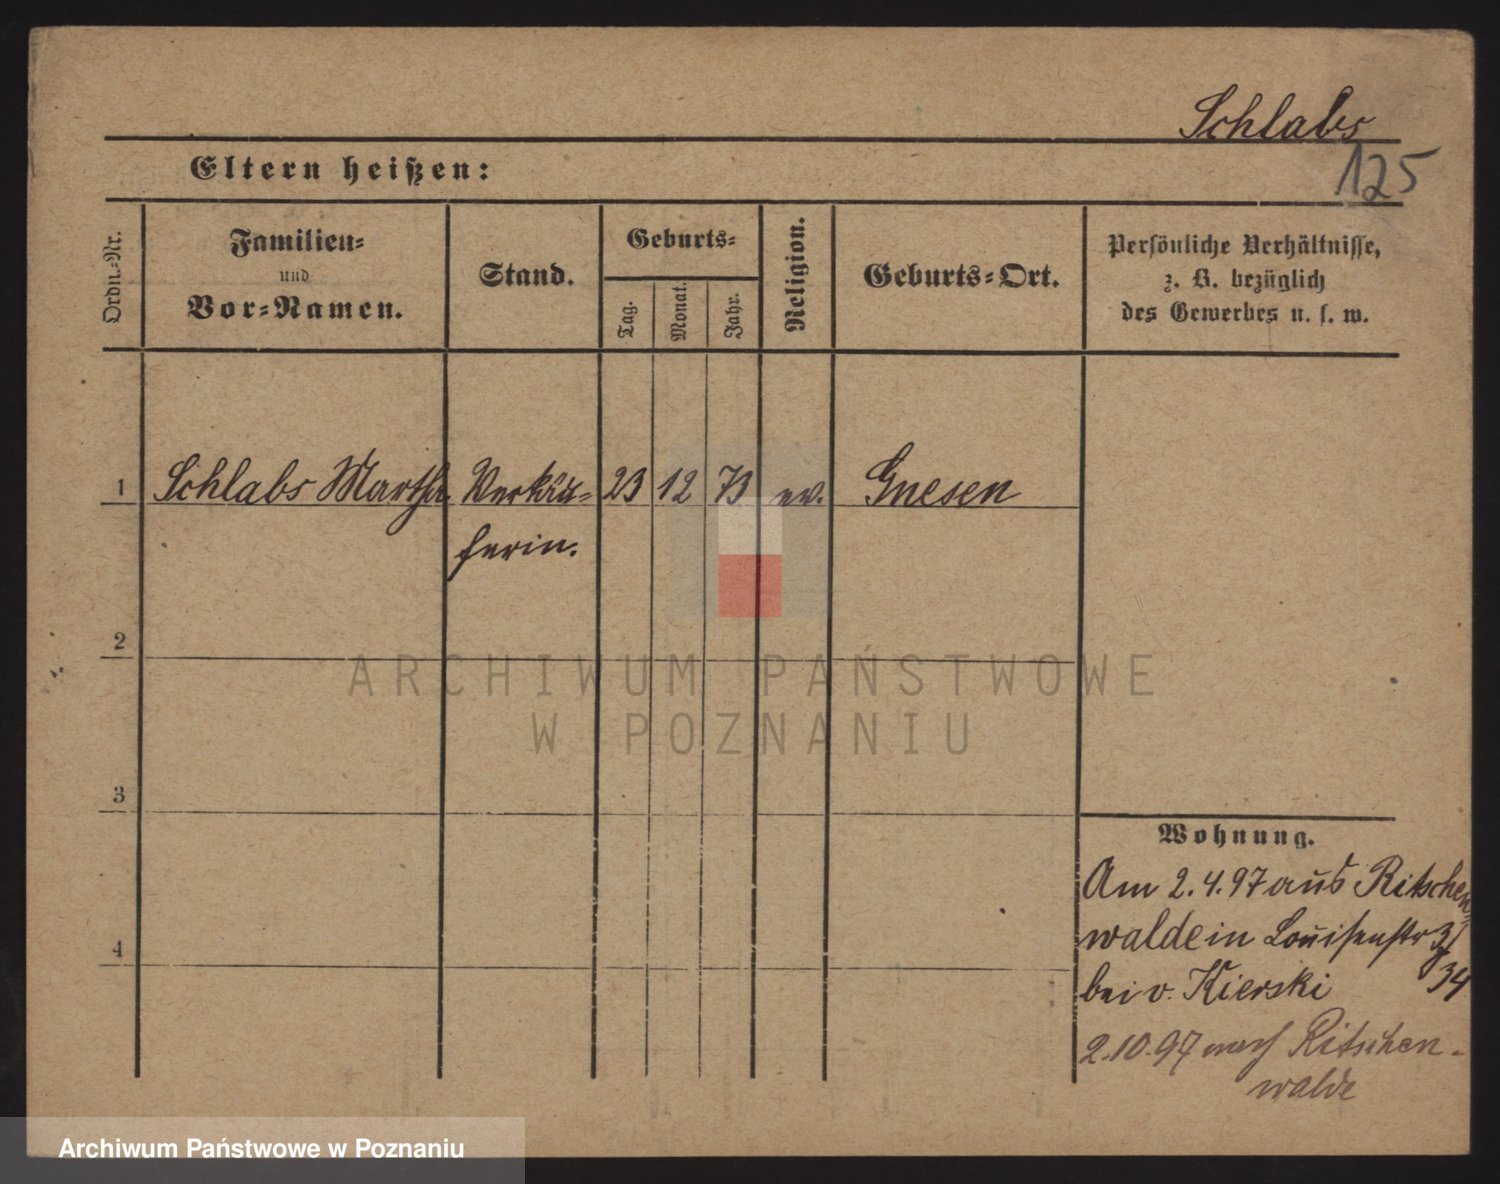 Schlabs
125
Eltern heißen:
Ordn.-Nr.
Familien-
und
Vor-Namen.
Stand.
Geburts-
Tag.
Monat.
Jahr.
Religion.
Geburts-Ort.
Persönliche Verhältnisse,
z. B. bezüglich
des Gewerbes u. s. w.
1 Schlabs Martha Verkäu- 23 12 73 ev. Gnesen
ferin.
2
3
4
Wohnung.
Am 2.4.97 aus Ritschen-
walde in Louisenstr
34
bei v. Kierski
2.10.97 nach Ritschen-
walde
ARCHIWUM PAŃSTWOWE
W POZNANIU
Archiwum Państwowe w Poznaniu